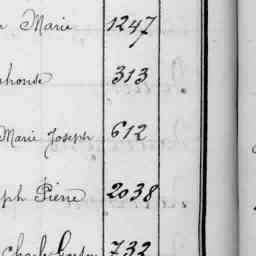 Marie 1247
phonse 313
Marie Joseph 612
ph Pierre 2038
Charles 732